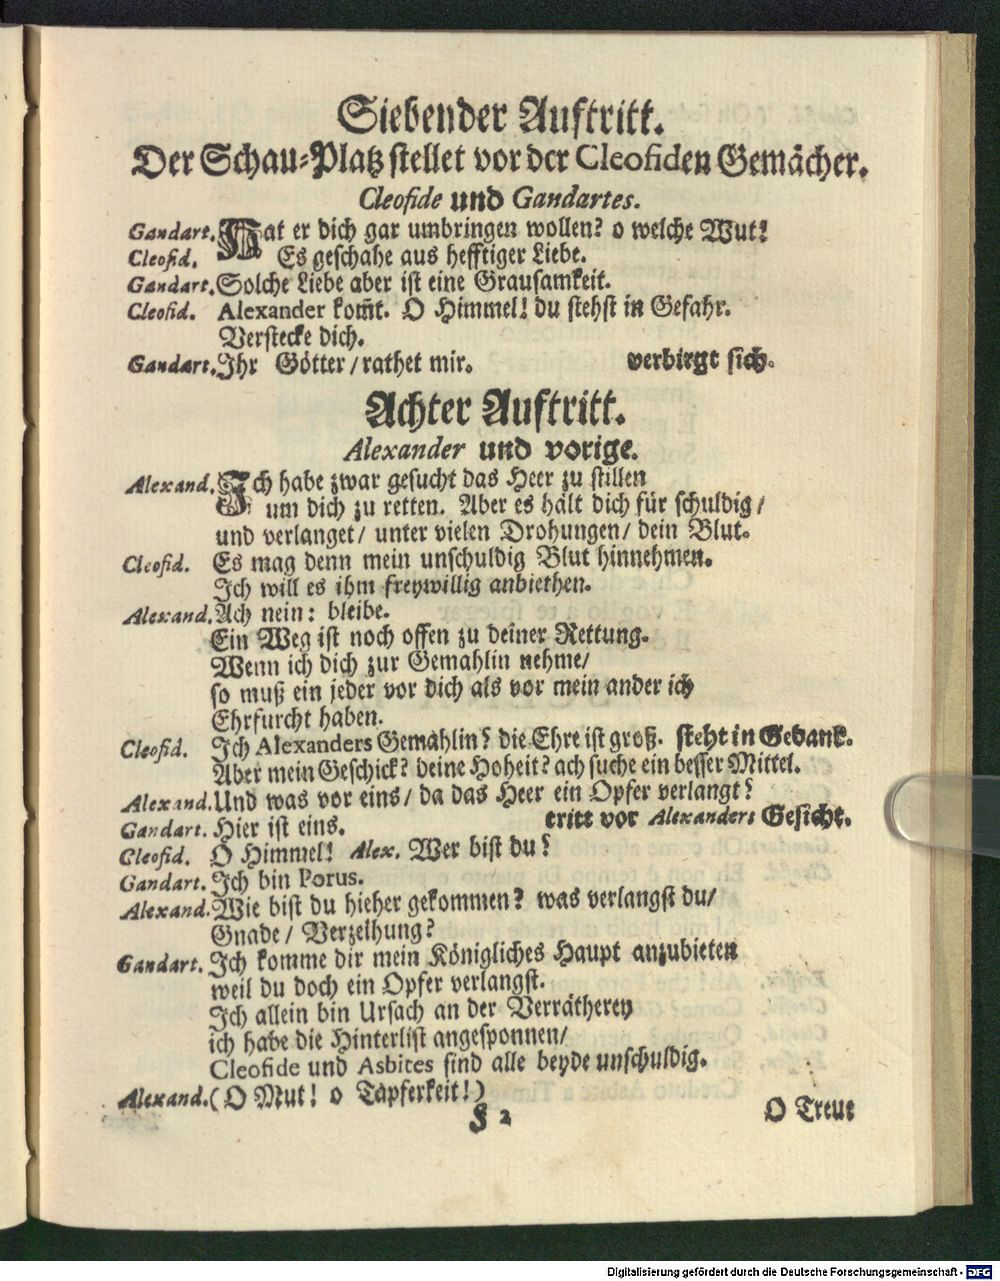 Siebender Auftritt.
Der Schau-Platz stellet vor der Cleofiden Gemächer.
Cleofide und Gandartes.
Gandart. Hat er dich gar umbringen wollen? o welche Wut!
Cleofid. Es geschahe aus hefftiger Liebe.
Gandart. Solche Liebe aber ist eine Grausamkeit.
Cleofid. Alexander kom̄t. O Himmel! du stehst in Gefahr.
Verstecke dich.
Gandart. Ihr Götter / rathet mir. verbirgt sich.
Achter Auftritt.
Alexander und vorige.
Alexand. Ich habe zwar gesucht das Heer zu stillen
um dich zu retten. Aber es hält dich für schuldig /
und verlanget / unter vielen Drohungen / dein Blut.
Cleofid. Es mag denn mein unschuldig Blut hinnehmen.
Ich will es ihm freywillig anbiethen.
Alexand. Ach nein: bleibe.
Ein Weg ist noch offen zu deiner Rettung.
Wenn ich dich zur Gemahlin nehme /
so muß ein jeder vor dich als vor mein ander ich
Ehrfurcht haben.
Cleofid. Ich Alexanders Gemahlin? die Ehre ist groß. steht in Gedank.
Aber mein Geschick? deine Hoheit? ach suche ein besser Mittel.
Alexand. Und was vor eins / da das Heer ein Opfer verlangt?
Gandart. Hier ist eins. tritt vor Alexanders Gesicht.
Cleofid. O Himmel! Alex. Wer bist du?
Gandart. Ich bin Porus.
Alexand. Wie bist du hieher gekommen? was verlangst du /
Gnade / Verzeihung?
Gandart. Ich komme dir mein Königliches Haupt anzubieten
weil du doch ein Opfer verlangst.
Ich allein bin Ursach an der Verrätherey
ich habe die Hinterlist angesponnen /
Cleofide und Asbites sind alle beyde unschuldig.
Alexand. (O Mut! o Tapferkeit!)
F 2 O Treue
Digitalisierung gefördert durch die Deutsche Forschungsgemeinschaft - DFG